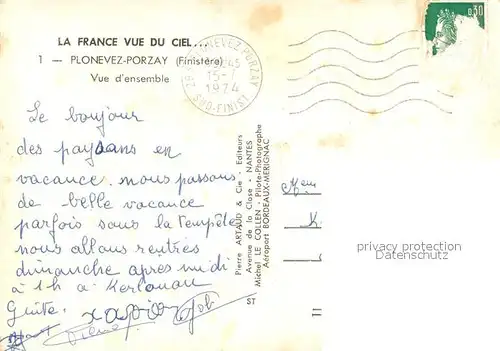 LA FRANCE VUE DU CIEL...
1 — PLONEVEZ-PORZAY (Finistère)
Vue d'ensemble
29 PLONEVEZ PORZAY
15-7
1974
SUD-FINIST
0,30
Le bonjour
des paysans en
vacance. nous passons
de belle vacance
parfois sous la tempête
nous allons rentrés
dimanche après midi
à 1h à Kerlouan
Guite.
Pierre ARTAUD & Cie - Editeurs
Avenue de la Close - NANTES
Michel LE COLLEN - Pilote-Photographe
Aéroport BORDEAUX-MERIGNAC
ST
K.
privacy protection
Datenschutz